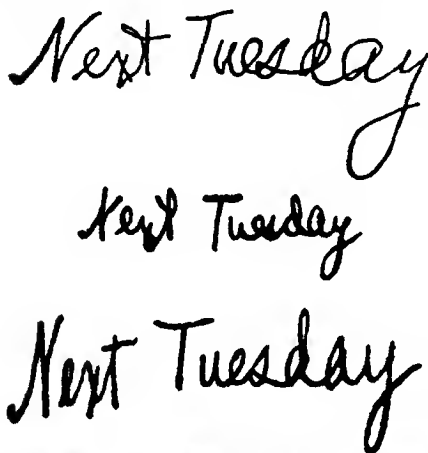 Next Tuesday
Next Tuesday
Next Tuesday